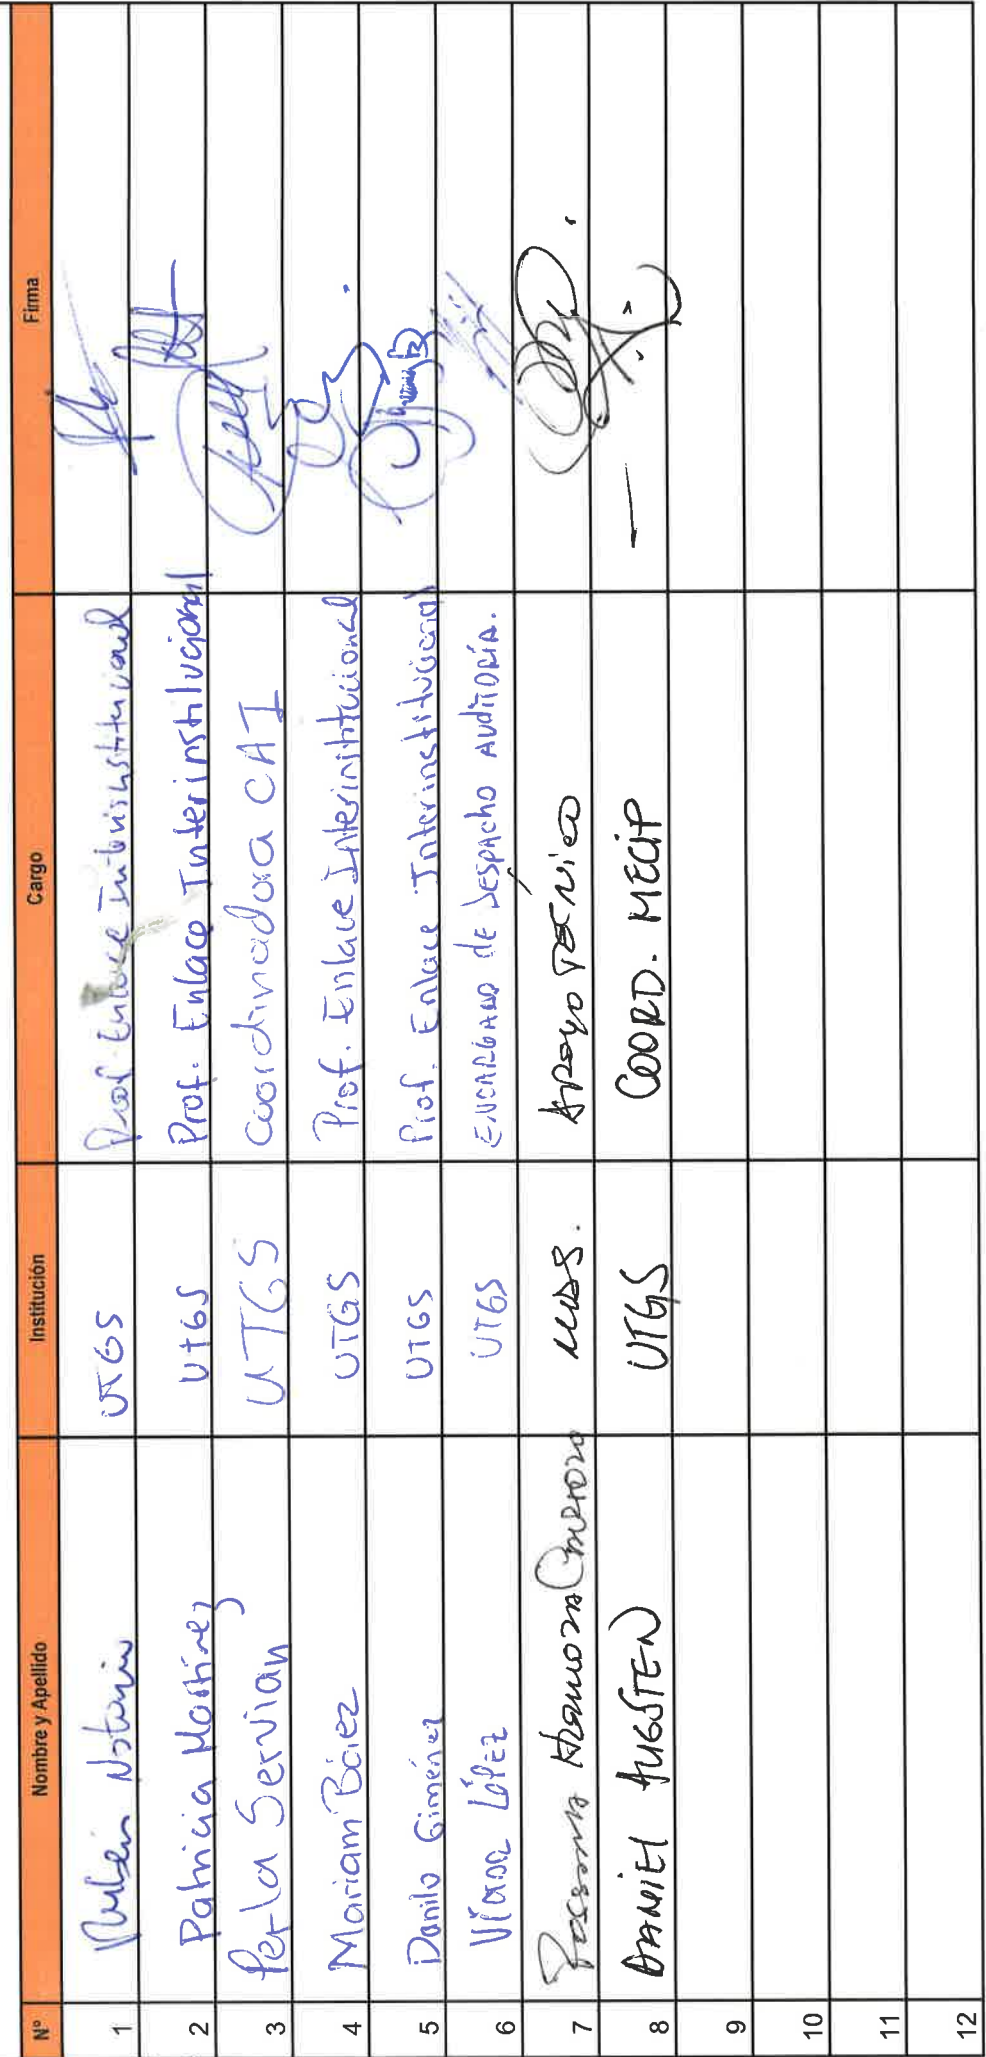 Nº Nombre y Apellido Institución Cargo Firma
1 Rubén Notario UTGS Prof. Enlace Interinstitucional
2 Patricia Martínez UTGS Prof. Enlace Interinstitucional
3 Perla Servian UTGS Coordinadora CAI
4 Mariam Báez UTGS Prof. Enlace Interinstitucional
5 Danilo Giménez UTGS Prof. Enlace Interinstitucional
6 López UTGS ENCARGADO DE DESPACHO AUDITORÍA.
7 MDS. APOYO TÉCNICO
8 DANIEL AUGSTEN UTGS COORD. MECIP
9
10
11
12